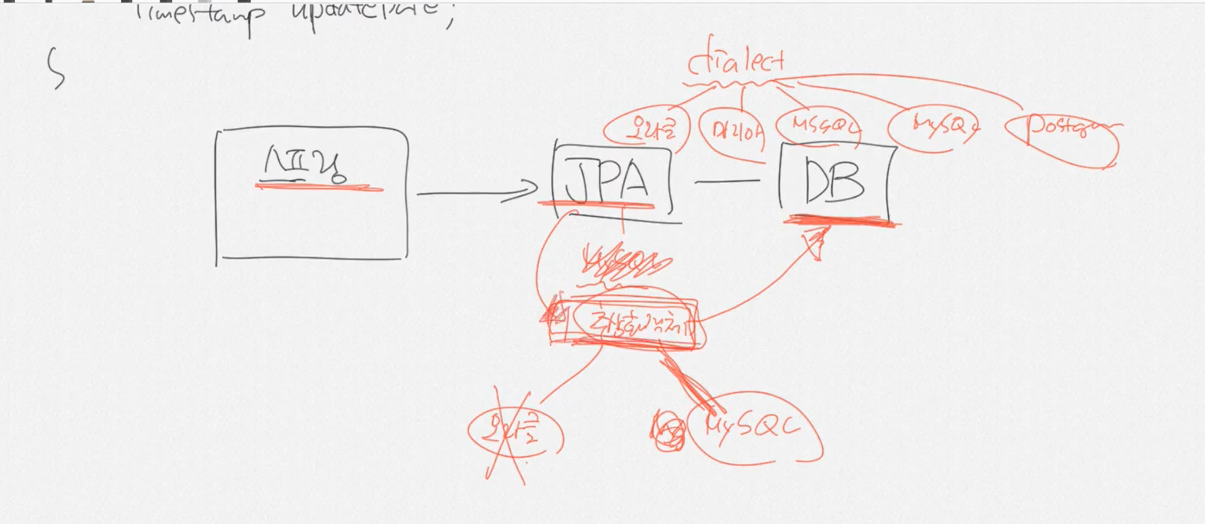 Timestamp updateDate;
}
dialect
오라클
마리아
MSSQL
MySQL
Postgre
스프링
JPA
DB
추상화객체
오라클
MySQL